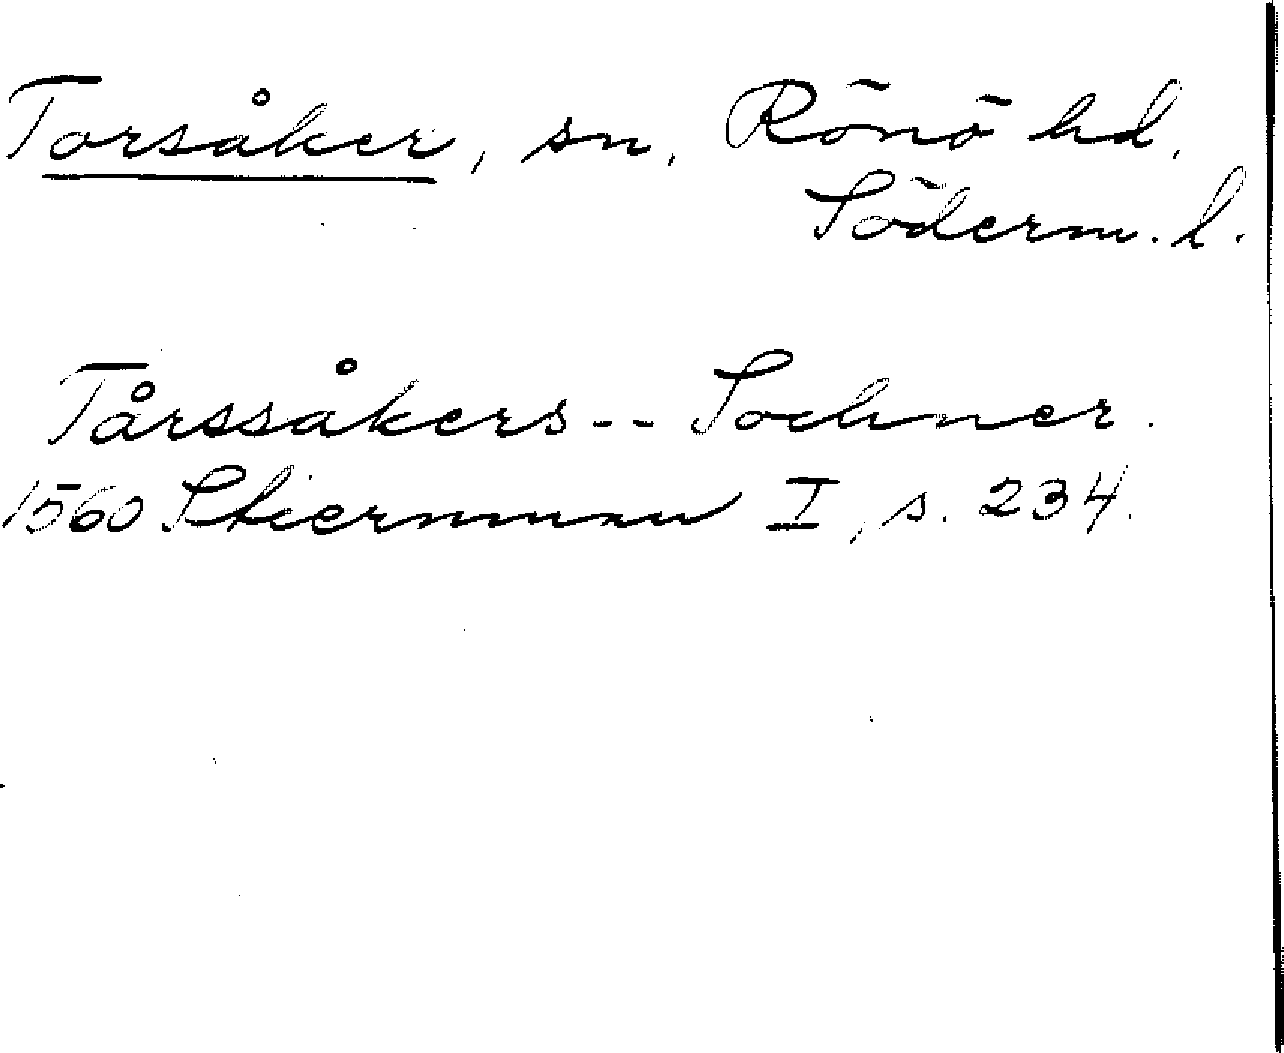 Torsåker, sn, Rönö hd,
Söderm. l.
Tårssåkers -- Sochner.
1560 Stiernman I, s. 234.